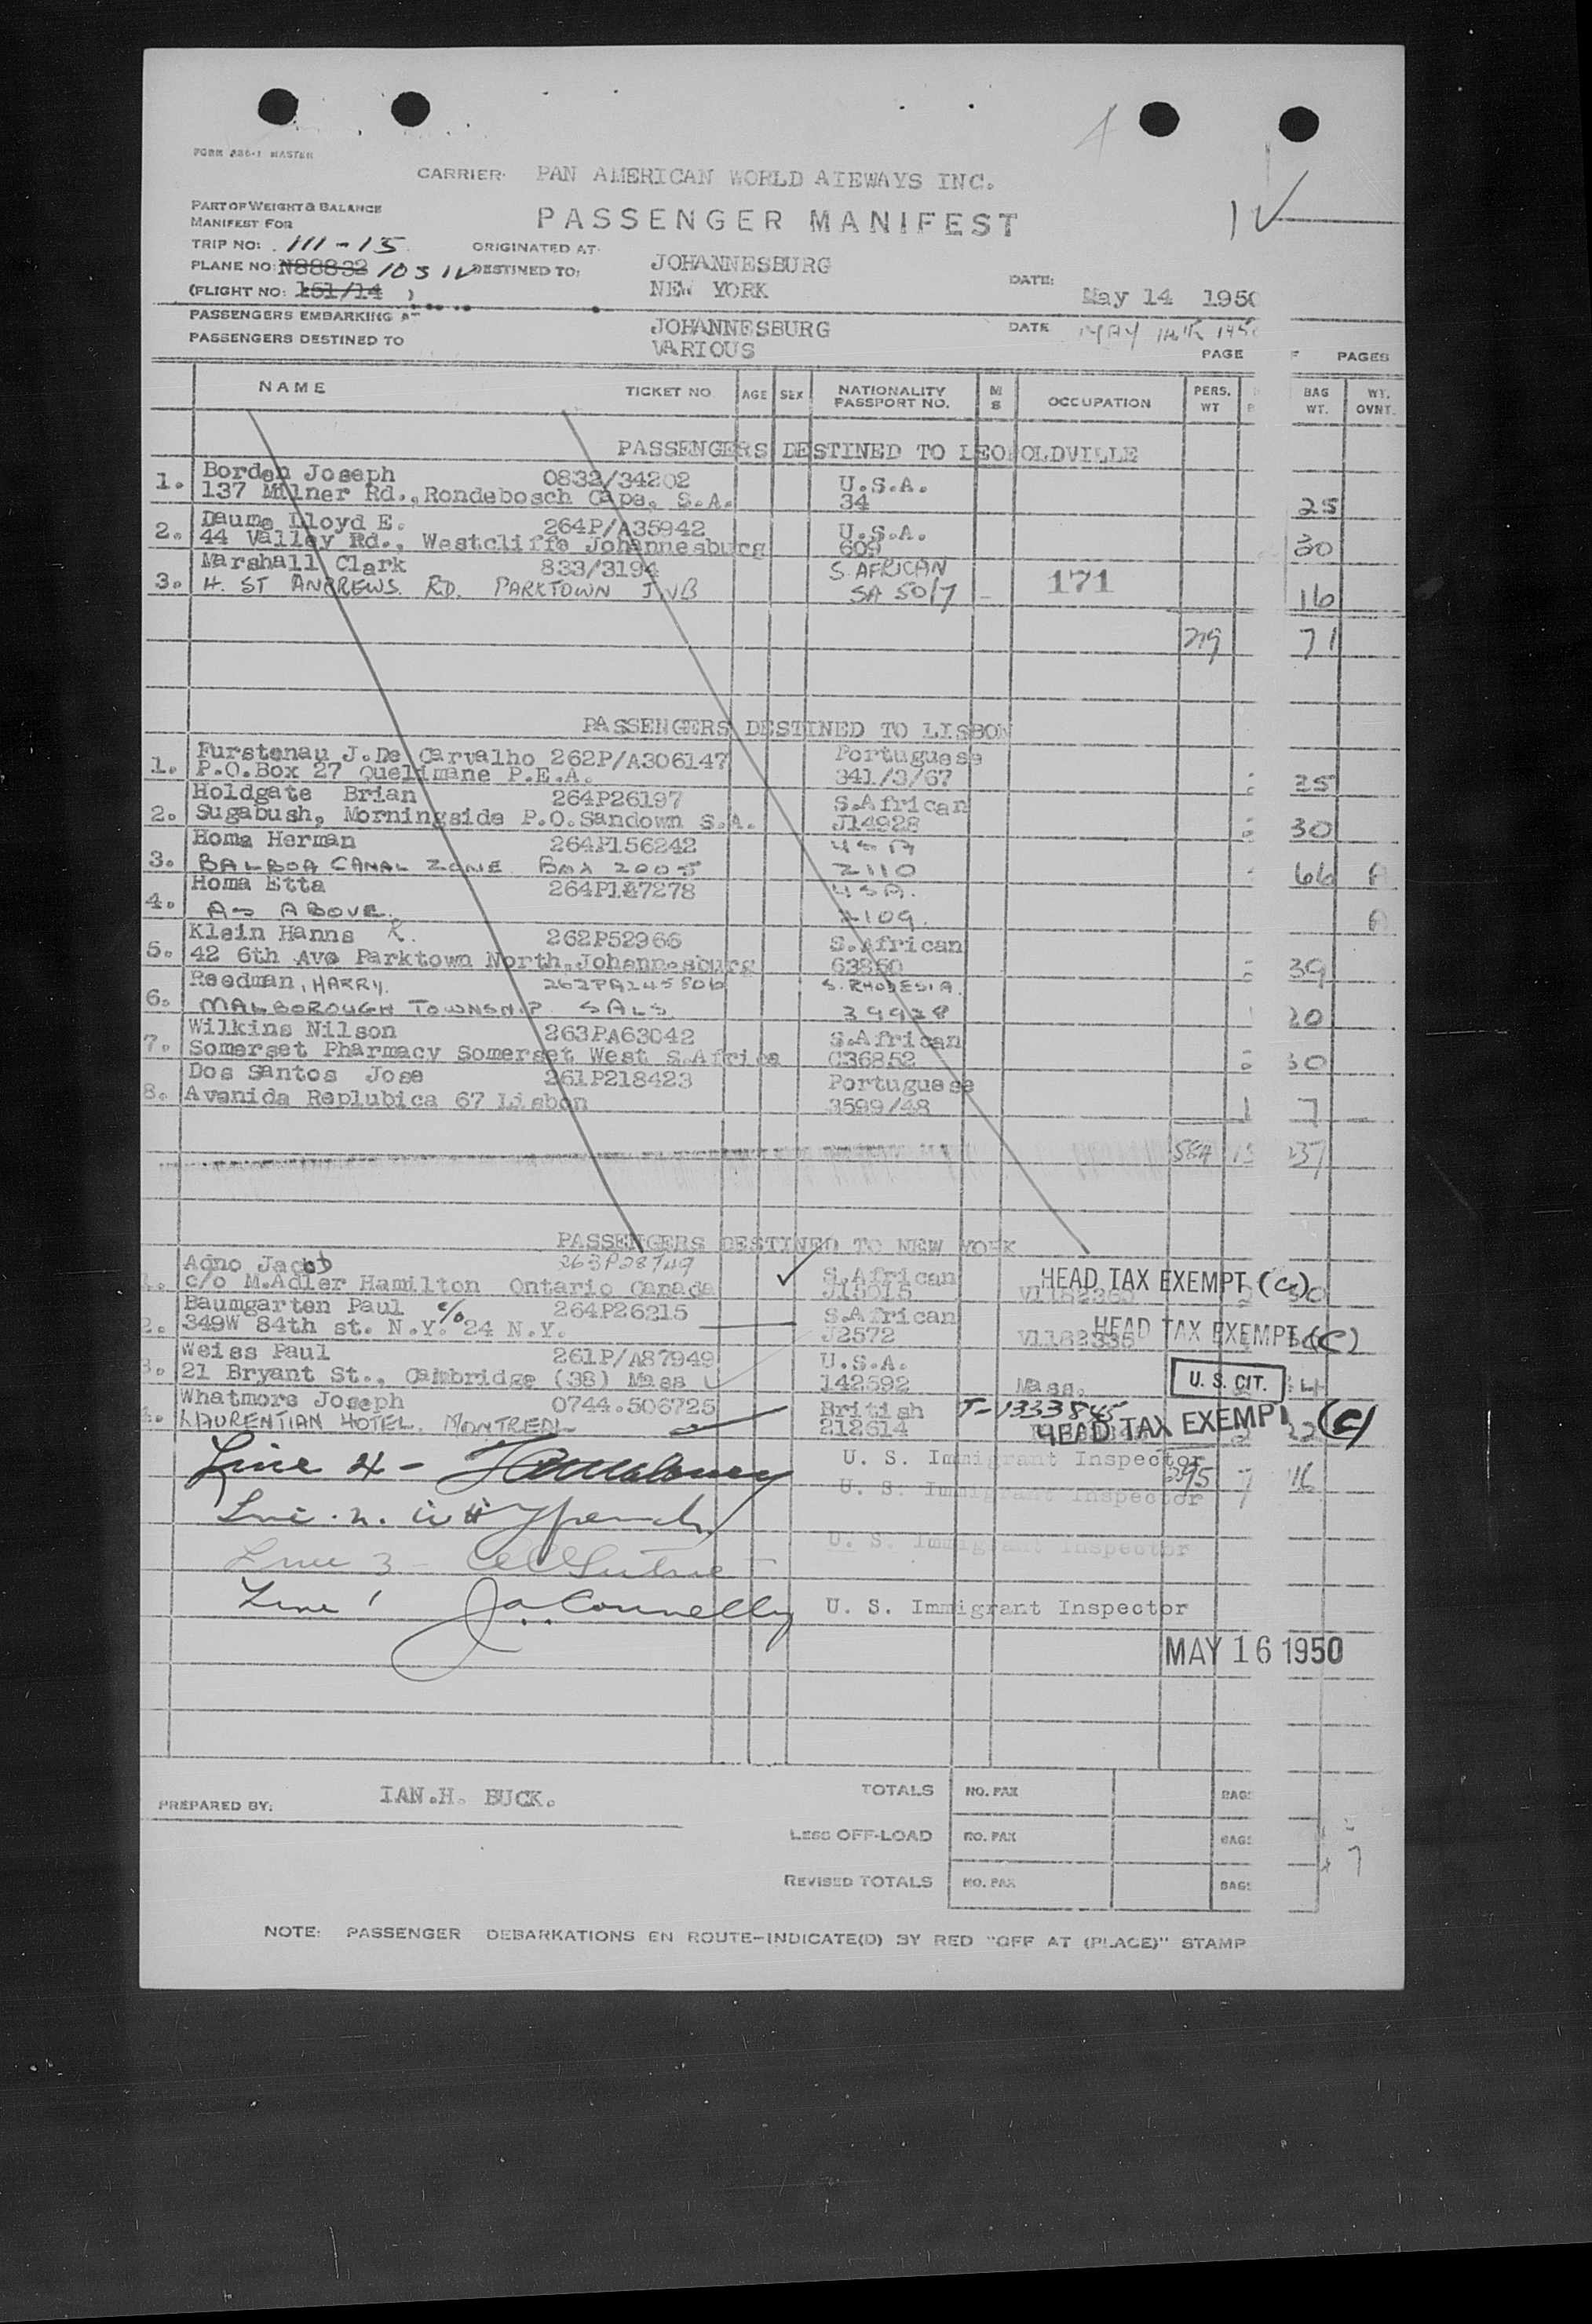 FORM 286-1 MASTER
CARRIER: PAN AMERICAN WORLD AIEWAYS INC.
PART OF WEIGHT & BALANCE
MANIFEST FOR
PASSENGER MANIFEST
TRIP NO: 111-15
ORIGINATED AT: JOHANNESBURG
PLANE NO: N88832 1031V DESTINED TO: NEW YORK
DATE: May 14 1950
(FLIGHT NO: 151/14 )
PASSENGERS EMBARKING AT JOHANNESBURG DATE MAY 14th 195
PASSENGERS DESTINED TO VARIOUS
PAGE F PAGES
NAME TICKET NO. AGE SEX NATIONALITY PASSPORT NO. M S OCCUPATION PERS. WT BAG WT. WT. OVNT.
PASSENGERS DESTINED TO LEOPOLDVILLE
1. Borden Joseph 0832/34202 U.S.A.
137 Milner Rd., Rondebosch Cape, S.A. 34 25
2. Daume Lloyd E. 264P/A35942 U.S.A.
44 Valley Rd., Westcliffe Johannesburg 609 30
3. Marshall Clark 833/3194 S. AFRICAN
H. ST ANDREWS RD. PARKTOWN JVB SA 50/7 171 16
219 71
PASSENGERS DESTINED TO LISBON
1. Furstenau J.De Carvalho 262P/A306147 Portuguese
P.O.Box 27 Quelimane P.E.A. 341/3/67 35
2. Holdgate Brian 264P26197 S.African
Sugabush, Morningside P.O.Sandown S.A. J14928 30
3. Homa Herman 264P156242 USA
BALBOA CANAL ZONE BOX 2005 2110 66 A
4. Homa Etta 264P147278 USA.
AS ABOVE. 2109. A
5. Klein Hanns R. 262P52966 S.African
42 6th Ave Parktown North, Johannesburg 63860 39
6. Reedman, HARRY. 262PA245806 S. RHODESIA.
MALBOROUGH TOWNSHIP SALS. 39928 20
7. Wilkins Nilson 263PA63042 S.African
Somerset Pharmacy Somerset West S.Africa C36852 30
8. Dos Santos Jose 261P218423 Portuguese
Avenida Replubica 67 Lisbon 3599/48 1 7
584 237
PASSENGERS DESTINED TO NEW YORK
1. Agno Jacob 263P28749 S.African HEAD TAX EXEMPT (C)
c/o M.Adler Hamilton Ontario Canada J15015
2. Baumgarten Paul c/o 264P26215 S.African HEAD TAX EXEMPT (C)
349W 84th st. N.Y. 24 N.Y. J2572 V1182336
3. Weiss Paul 261P/A87949 U.S.A. U. S. CIT.
21 Bryant St., Cambridge (38) Mass 142592 Mass.
4. Whatmore Joseph 0744.506725 British T-1333845
LAURENTIAN HOTEL. MONTREAL 212614 HEAD TAX EXEMPT (C)
Line 4 - U. S. Immigrant Inspector
295 7 116
Line 2. U. S. Immigrant Inspector
Line 3 - U. S. Immigrant Inspector
Line 1 Ja. Connelly U. S. Immigrant Inspector
MAY 16 1950
PREPARED BY: IAN.H. BUCK.
TOTALS NO. PAX BAGS
LESS OFF-LOAD NO. PAX BAGS
REVISED TOTALS NO. PAX BAGS
NOTE: PASSENGER DEBARKATIONS EN ROUTE-INDICATE(D) BY RED "OFF AT (PLACE)" STAMP